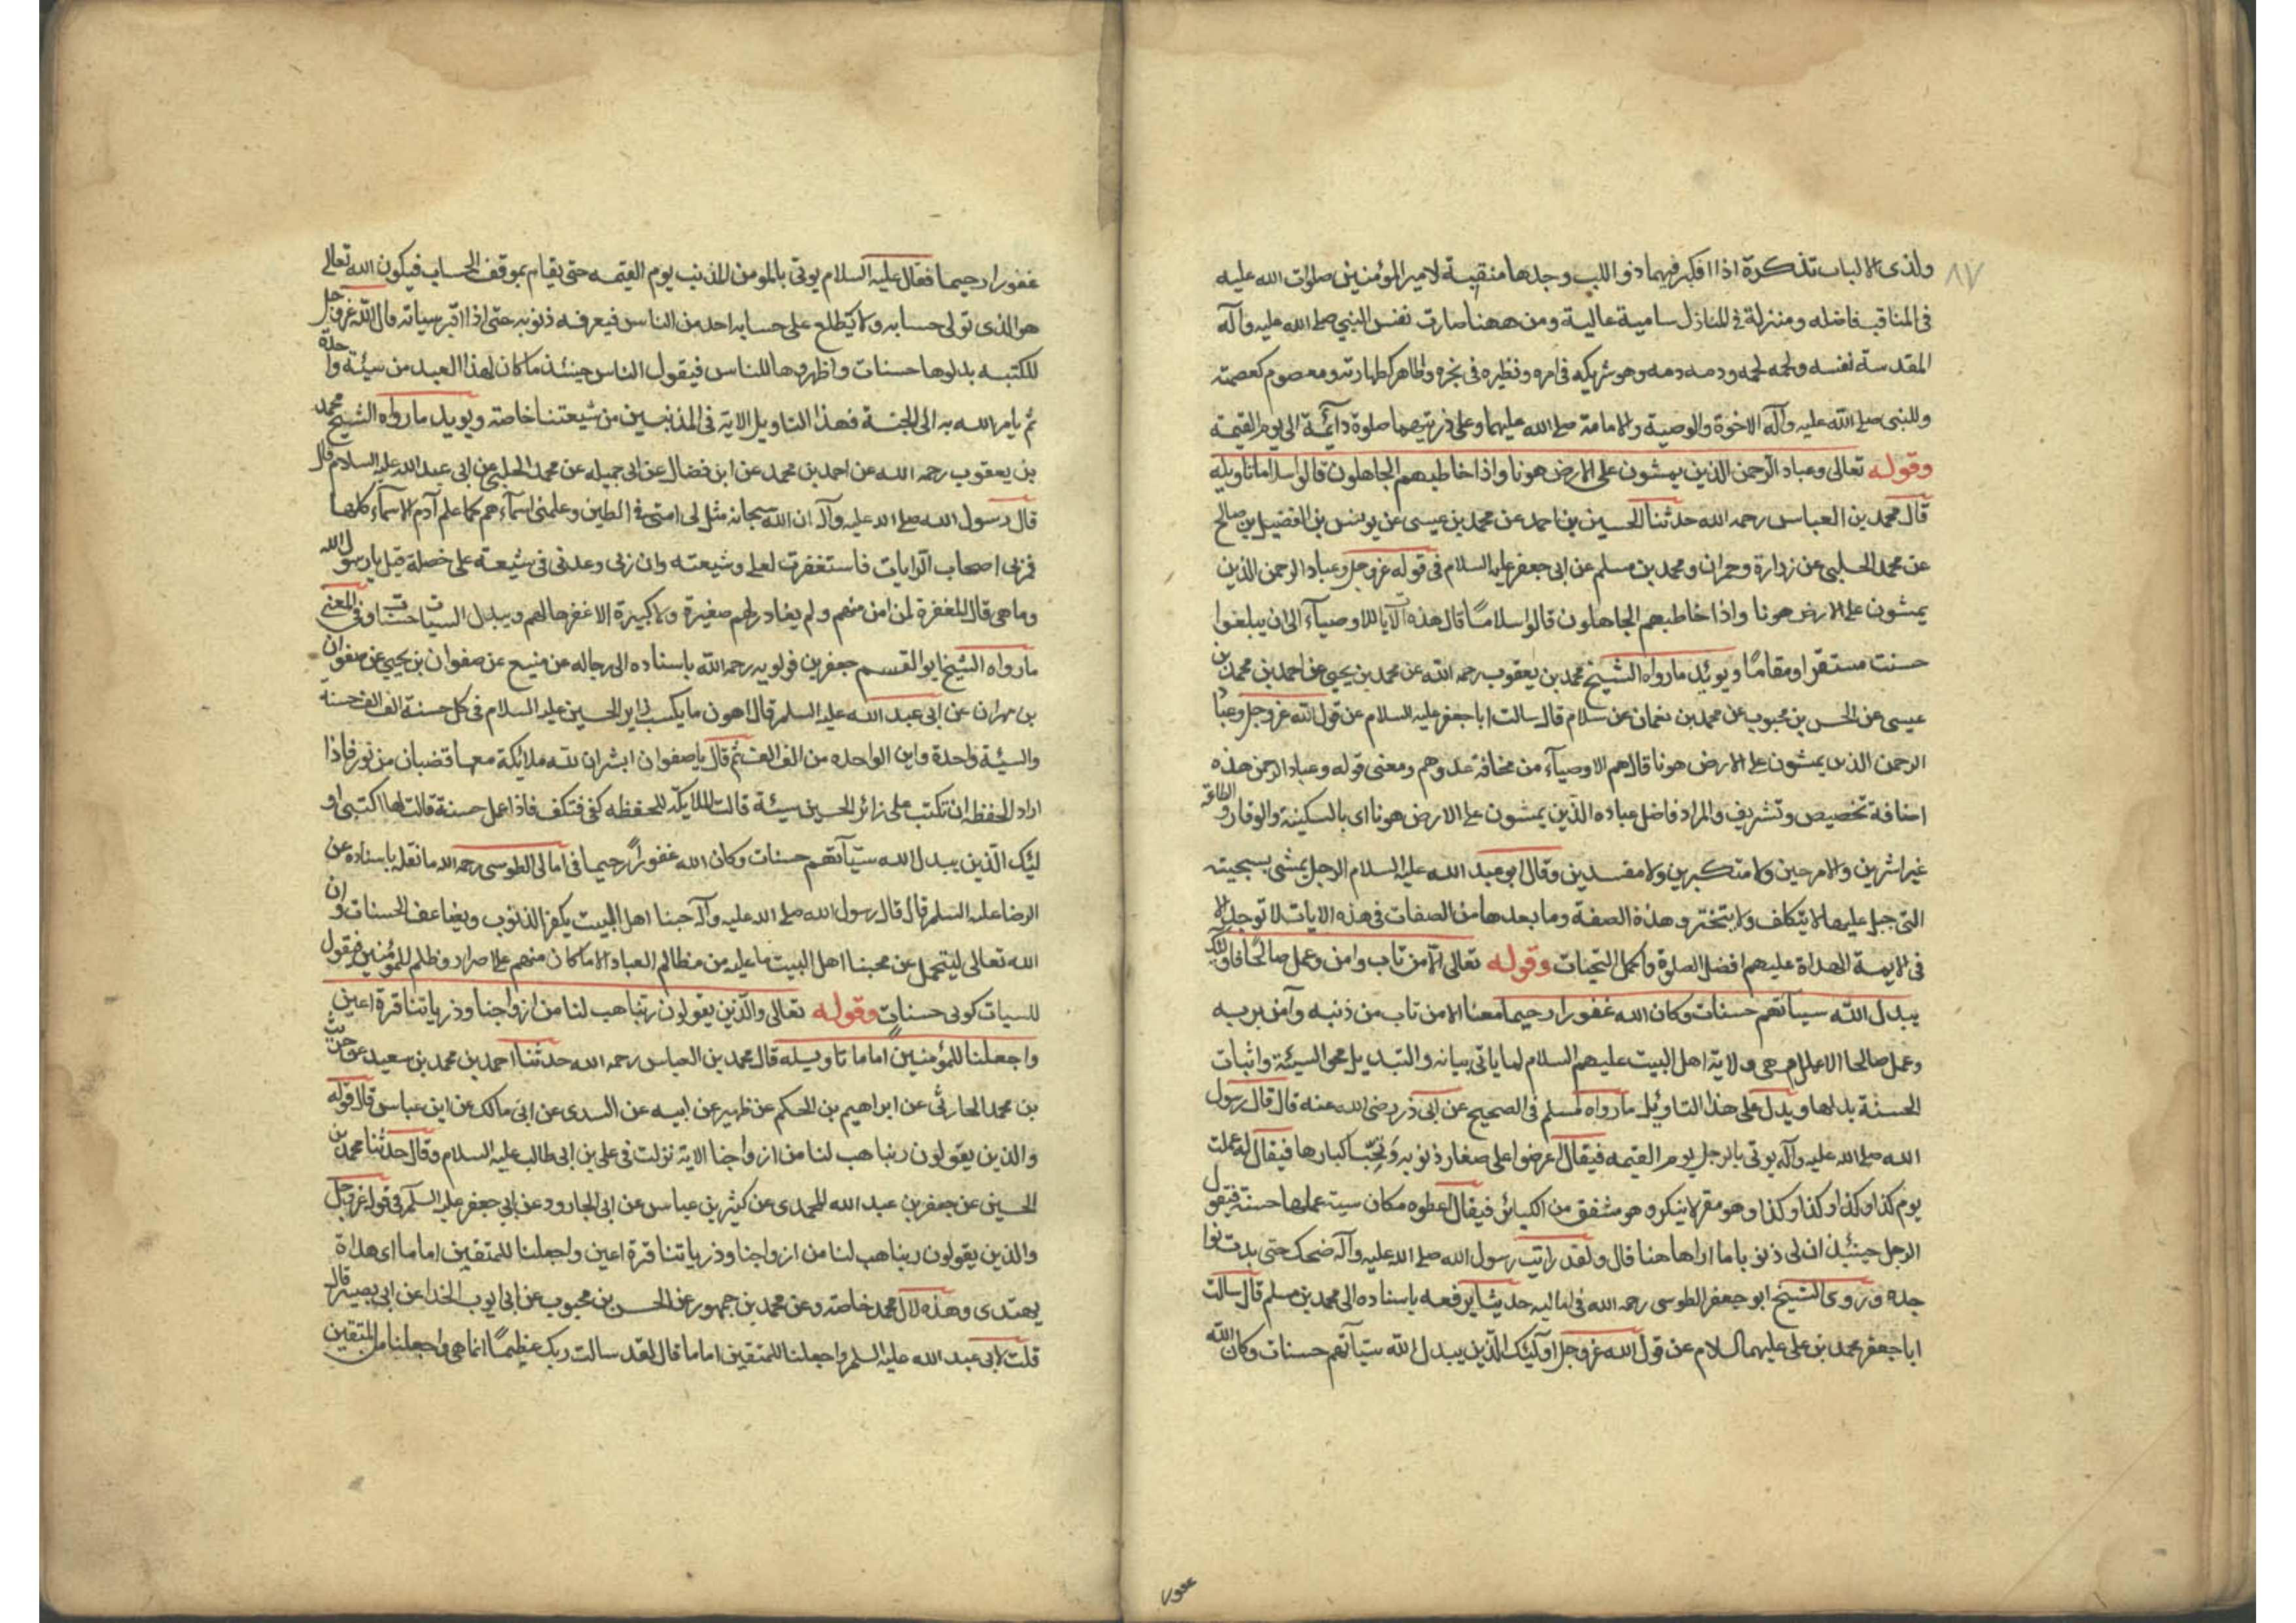 ٨٧
ولذى الالباب تذكرة اذا افكر فيهما ذو اللب وجدها منقبة لامير المؤمنين صلوات الله عليه
فى المناقب فاضله ومنزلة فى المنازل سامية عالية ومن ههنا صارت نفس النبي صلى الله عليه وآله
المقدسة نفسه ولحمه لحمه ودمه دمه وهو شريكه فى امره ونظيره فى نجره وطاهر كطهارته ومعصوم كعصمته
وللنبى صلى الله عليه وآله الاخوة والوصية والامامة صلى الله عليهما وعلى ذريتهما صلوة دائمة الى يوم القيمة
وقوله تعالى وعباد الرحمن الذين يمشون على الارض هونا واذا خاطبهم الجاهلون قالوا سلاما تاويله
قال محمد بن العباس رحمه الله حدثنا الحسين بن احمد عن محمد بن عيسى عن يونس بن المفضل بن صالح
عن محمد الحلبى عن زرارة وحمران ومحمد بن مسلم عن ابى جعفر عليه السلام فى قوله عز وجل وعباد الرحمن الذين
يمشون على الارض هونا واذا خاطبهم الجاهلون قالوا سلامًا قال هذه الآيات للاوصيآء الى ان يبلغوا
حسنت مستقرا ومقامًا ويوئد ما رواه الشيخ محمد بن يعقوب رحمه الله عن محمد بن يحيى عن احمد بن محمد بن
عيسى عن الحسن بن محبوب عن محمد بن نعمان عن سلام قال سالت ابا جعفر عليه السلام عن قول الله عز وجل وعباد
الرحمن الذين يمشون على الارض هونا قال هم الاوصيآء من مخافة عدوهم ومعنى قوله وعباد الرحمن هذه
اضافة تخصيص وتشريف والمراد فاضل عباده الذين يمشون على الارض هونا اى بالسكينة والوقار والطاعة
غير اشرين ولا مرحين ولا متكبرين ولا مفسدين وقال ابو عبد الله عليه السلام الرجل يمشى بسجيته
التى جبل عليها لا يتكلف ولا يتبختر وهذه الصفة وما بعدها من الصفات فى هذه الايات لا توجد الا
فى الايمة الهداة عليهم افضل الصلوة واكمل التحيات وقوله تعالى الا من تاب وامن وعمل صالحًا فاولئك
يبدل الله سيئاتهم حسنات وكان الله غفورا رحيما معناه الا من تاب من ذنبه وآمن بربه
وعمل صالحا الاعمال وهى ولاية اهل البيت عليهم السلام لما ياتى بيانه والتبديل محو السيئة واثبات
الحسنة بدلها ويدل على هذا التاويل ما رواه مسلم فى الصحيح عن ابى ذر رضى الله عنه قال قال رسول
الله صلى الله عليه وآله يوتى بالرجل يوم القيمه فيقال اعرضوا على صغار ذنوبه ونحّيا كبارها فيقال له عملت
يوم كذا وكذا وكذا وكذا وهو مقر لا ينكر وهو مشفق من الكبائر فيقال اعطوه مكان سيئة عملها حسنة فيقول
الرجل حينئذ ان لى ذنوبا ما اراها هنا قال ولقد رايت رسول الله صلى الله عليه وآله ضحك حتى بدت نوا
جده وروى الشيخ ابو جعفر الطوسى رحمه الله فى اماليه حديثا يرفعه باسناده الى محمد بن مسلم قال سالت
ابا جعفر محمد بن على عليهما السلام عن قول الله عز وجل اولئك الذين يبدل الله سيّآتهم حسنات وكان الله
غفورا رحيما فقال عليه السلام يوتى بالمومن المذنب يوم القيمه حتى يقام بموقف الحساب فيكون الله تعالى
هو الذى تولى حسابه ولا يطلع على حسابه احد من الناس فيعرفه ذنوبه حتى اذا اقر بسياته قال الله عز وجل
للكتبه بدلوها حسنات واظهروها للناس فيقول الناس حينئذ ما كان لهذا العبد من سيئة واحدة
ثم يامر الله به الى الجنة فهذا التاويل الاية فى المذنبين من شيعتنا خاصة ويويد ما رواه الشيخ محمد
بن يعقوب رحمه الله عن احمد بن محمد عن ابن فضال عن ابى جميله عن محمد الحلبى عن ابى عبد الله عليه السلام قال
قال رسول الله صلى الله عليه وآله ان الله سبحانه مثل لى امتى فى الطين وعلمنى اسماءهم كما علم آدم الاسماء كلها
فمر بى اصحاب الرايات فاستغفرت لعلى وشيعته وان ربى وعدنى فى شيعته على خصلة قيل يا رسول الله
وما هى قال المغفرة لمن امن منهم ولم يغادر لهم صغيرة ولا كبيرة الا غفرها لهم ويبدل السيئات حسنات وفى المعنى
ما رواه الشيخ ابو القسم جعفر بن قولويه رحمه الله باسناده الى رجاله عن منيع عن صفوان بن يحيى عن صفوان
بن مهران عن ابى عبد الله عليه السلم قال اهون ما يكسب زاير الحسين عليه السلام فى كل حسنة الف الف حسنه
والسيئة واحدة واين الواحده من الف الف ثم قال يا صفوان ابشر ان لله ملائكة معها قضبان من نور فاذا
اراد الحفظه ان تكتب على زائر الحسين سيئة قالت الملائكة للحفظه كفى فتكف فاذا عمل حسنة قالت لها اكتبى او
لئك الّذين يبدل الله سيّآتهم حسنات وكان الله غفورًا رحيما فى امالى الطوسى رحمه الله ما نقله باسناده عن
الرضا عليه السلم قال قال رسول الله صلى الله عليه وآله حبنا اهل البيت يكفر الذنوب ويضاعف الحسنات وان
الله تعالى ليتحمل عن محبينا اهل البيت ما عليه من مظالم العباد الا ما كان منهم على اصرار وظلم للمؤمنين فيقول
للسيات كونى حسنات وقوله تعالى والّذين يقولون ربنا هب لنا من ازواجنا وذرياتنا قرة اعين
واجعلنا للمؤمنين اماما تاويله قال محمد بن العباس رحمه الله حدثنا احمد بن محمد بن سعيد عن حريث
بن محمد الحارثى عن ابراهيم بن الحكم عن ظهير عن ابيه عن السدى عن ابى مالك عن ابن عباس قال قوله
والذين يقولون ربنا هب لنا من ازواجنا الاية نزلت فى على بن ابى طالب عليه السلام وقال حدثنا محمد بن
الحسين عن جعفر بن عبد الله المحمدى عن كثير بن عياس عن ابى الجارود عن ابى جعفر عليه السلم فى قوله عز وجل
والذين يقولون ربنا هب لنا من ازواجنا وذرياتنا قرة اعين واجعلنا للمتقين اماما اى هداة
يهتدى وهذه لال محمد خاصة وعن محمد بن جمهور عن الحسن بن محبوب عن ابى ايوب الخذا عن ابى بصير قال
قلت لابى عبد الله عليه السلم واجعلنا للمتقين اماما قال لقد سالت ربك عظيمًا انما هى واجعلنا من المتقين